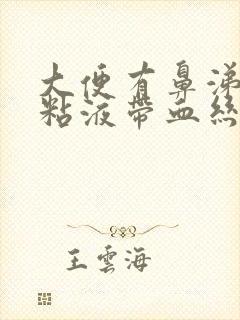 大便有鼻涕
粘液帶血絲
王雲海